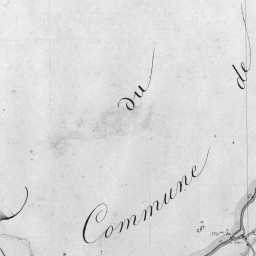 du
de
Commune